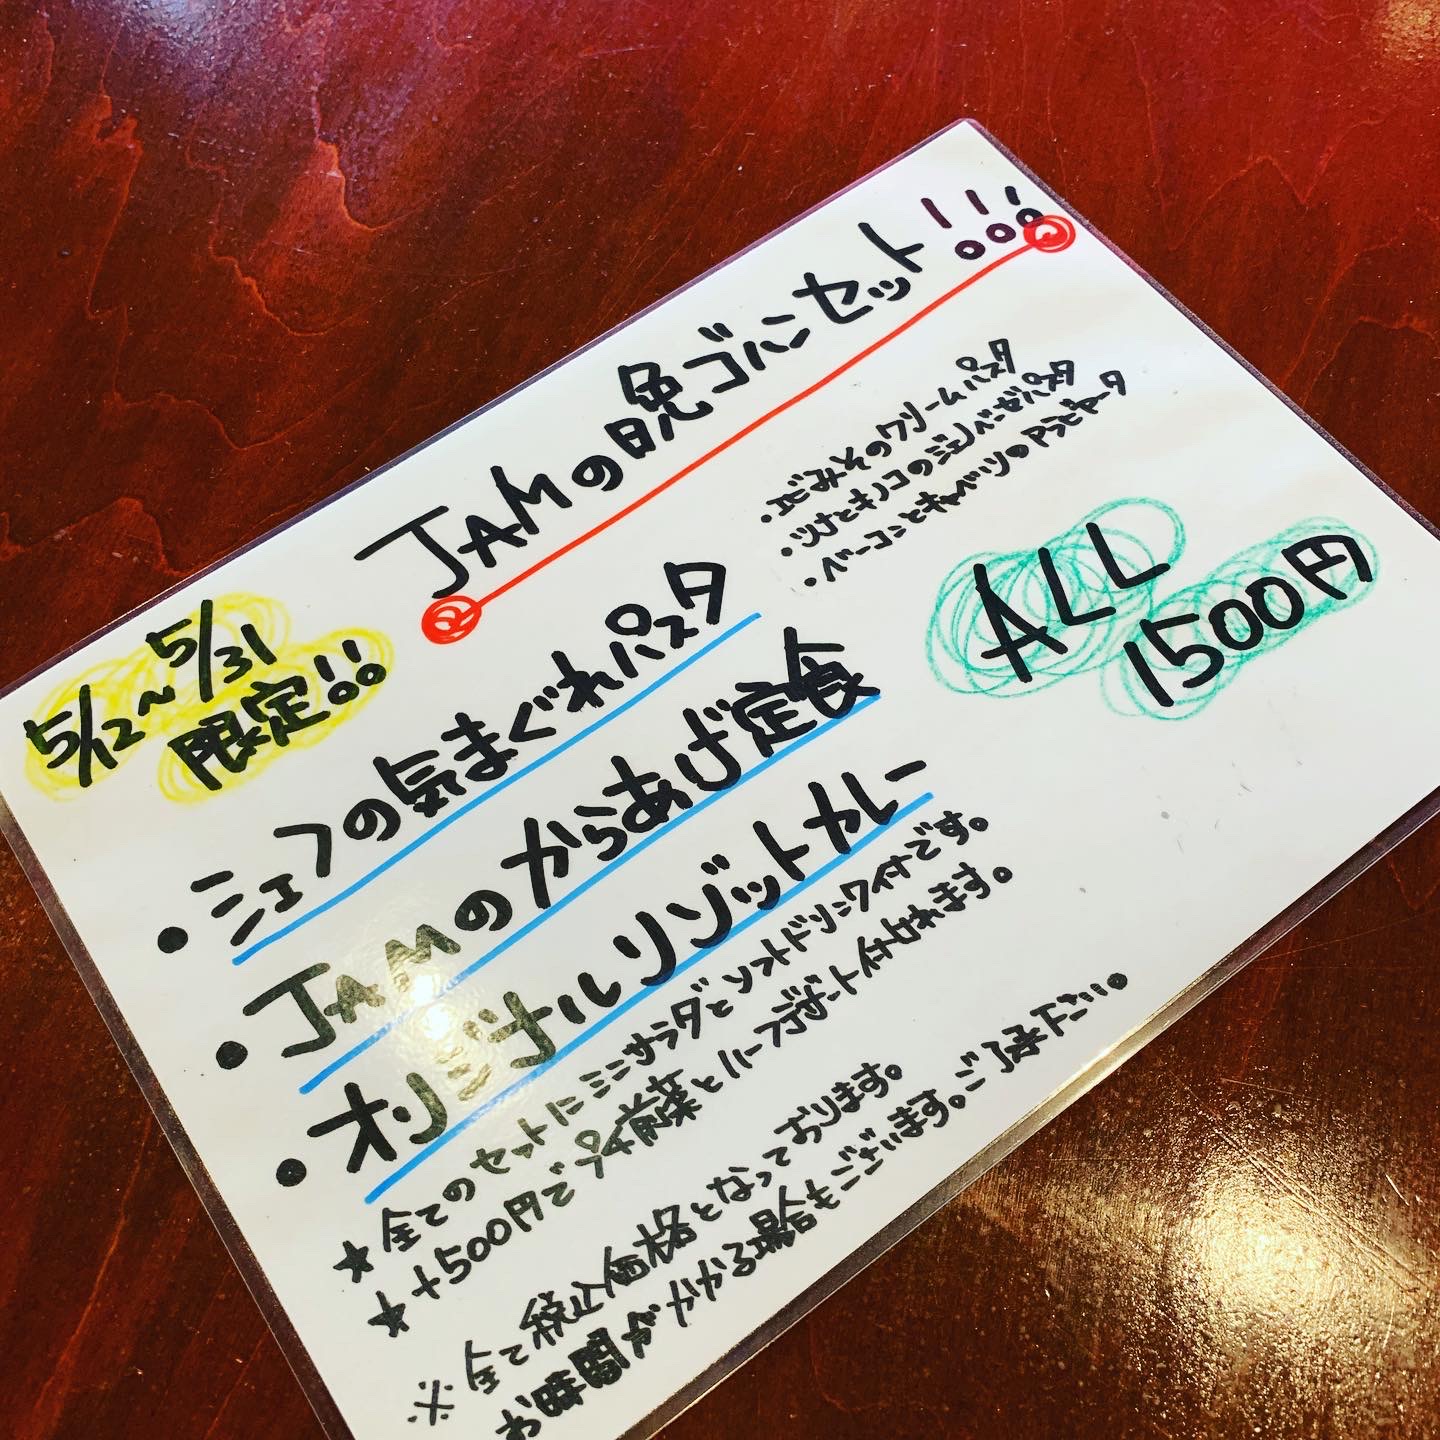 JAMの晩ゴハンセット!!!
5/12~5/31
限定!!
・シェフの気まぐれパスタ
・エビみそのクリームパスタ
・ツナとキノコのジェノベーゼパスタ
・ベーコンとキャベツのアラビヤータ
・JAMのからあげ定食
・オリジナルリゾットカレー
ALL
1500円
★全てのセットにミニサラダとソフトドリンク付です。
★+500円でプチ前菜とハーフデザート付けれます。
※全て税込価格となっております。
お時間がかかる場合もございます。ご了承下さい。